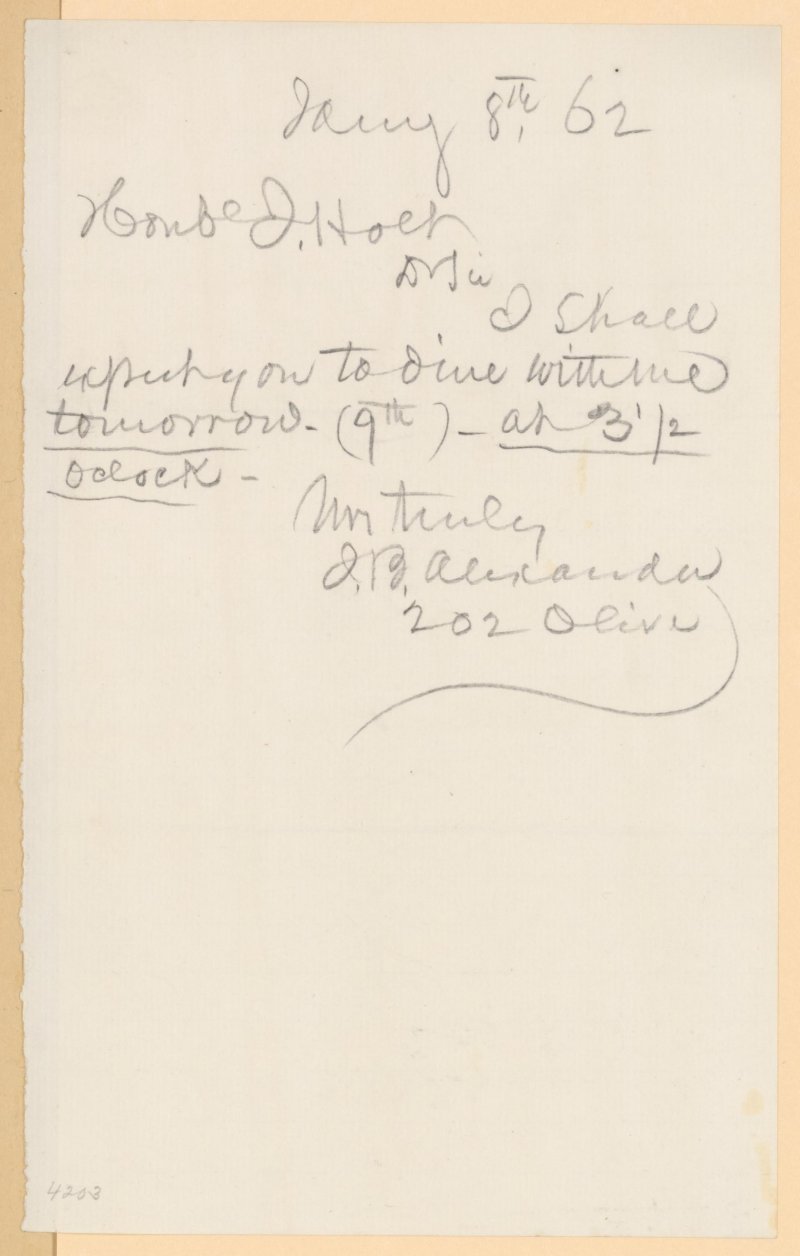 Jany 8th, 62
Honble J. Holt
Dr Sir
I Shall
expect you to dine with me
tomorrow - (9th) - at 3 1/2
oclock -
truly
J. B. Alexander
202 Olive
4203